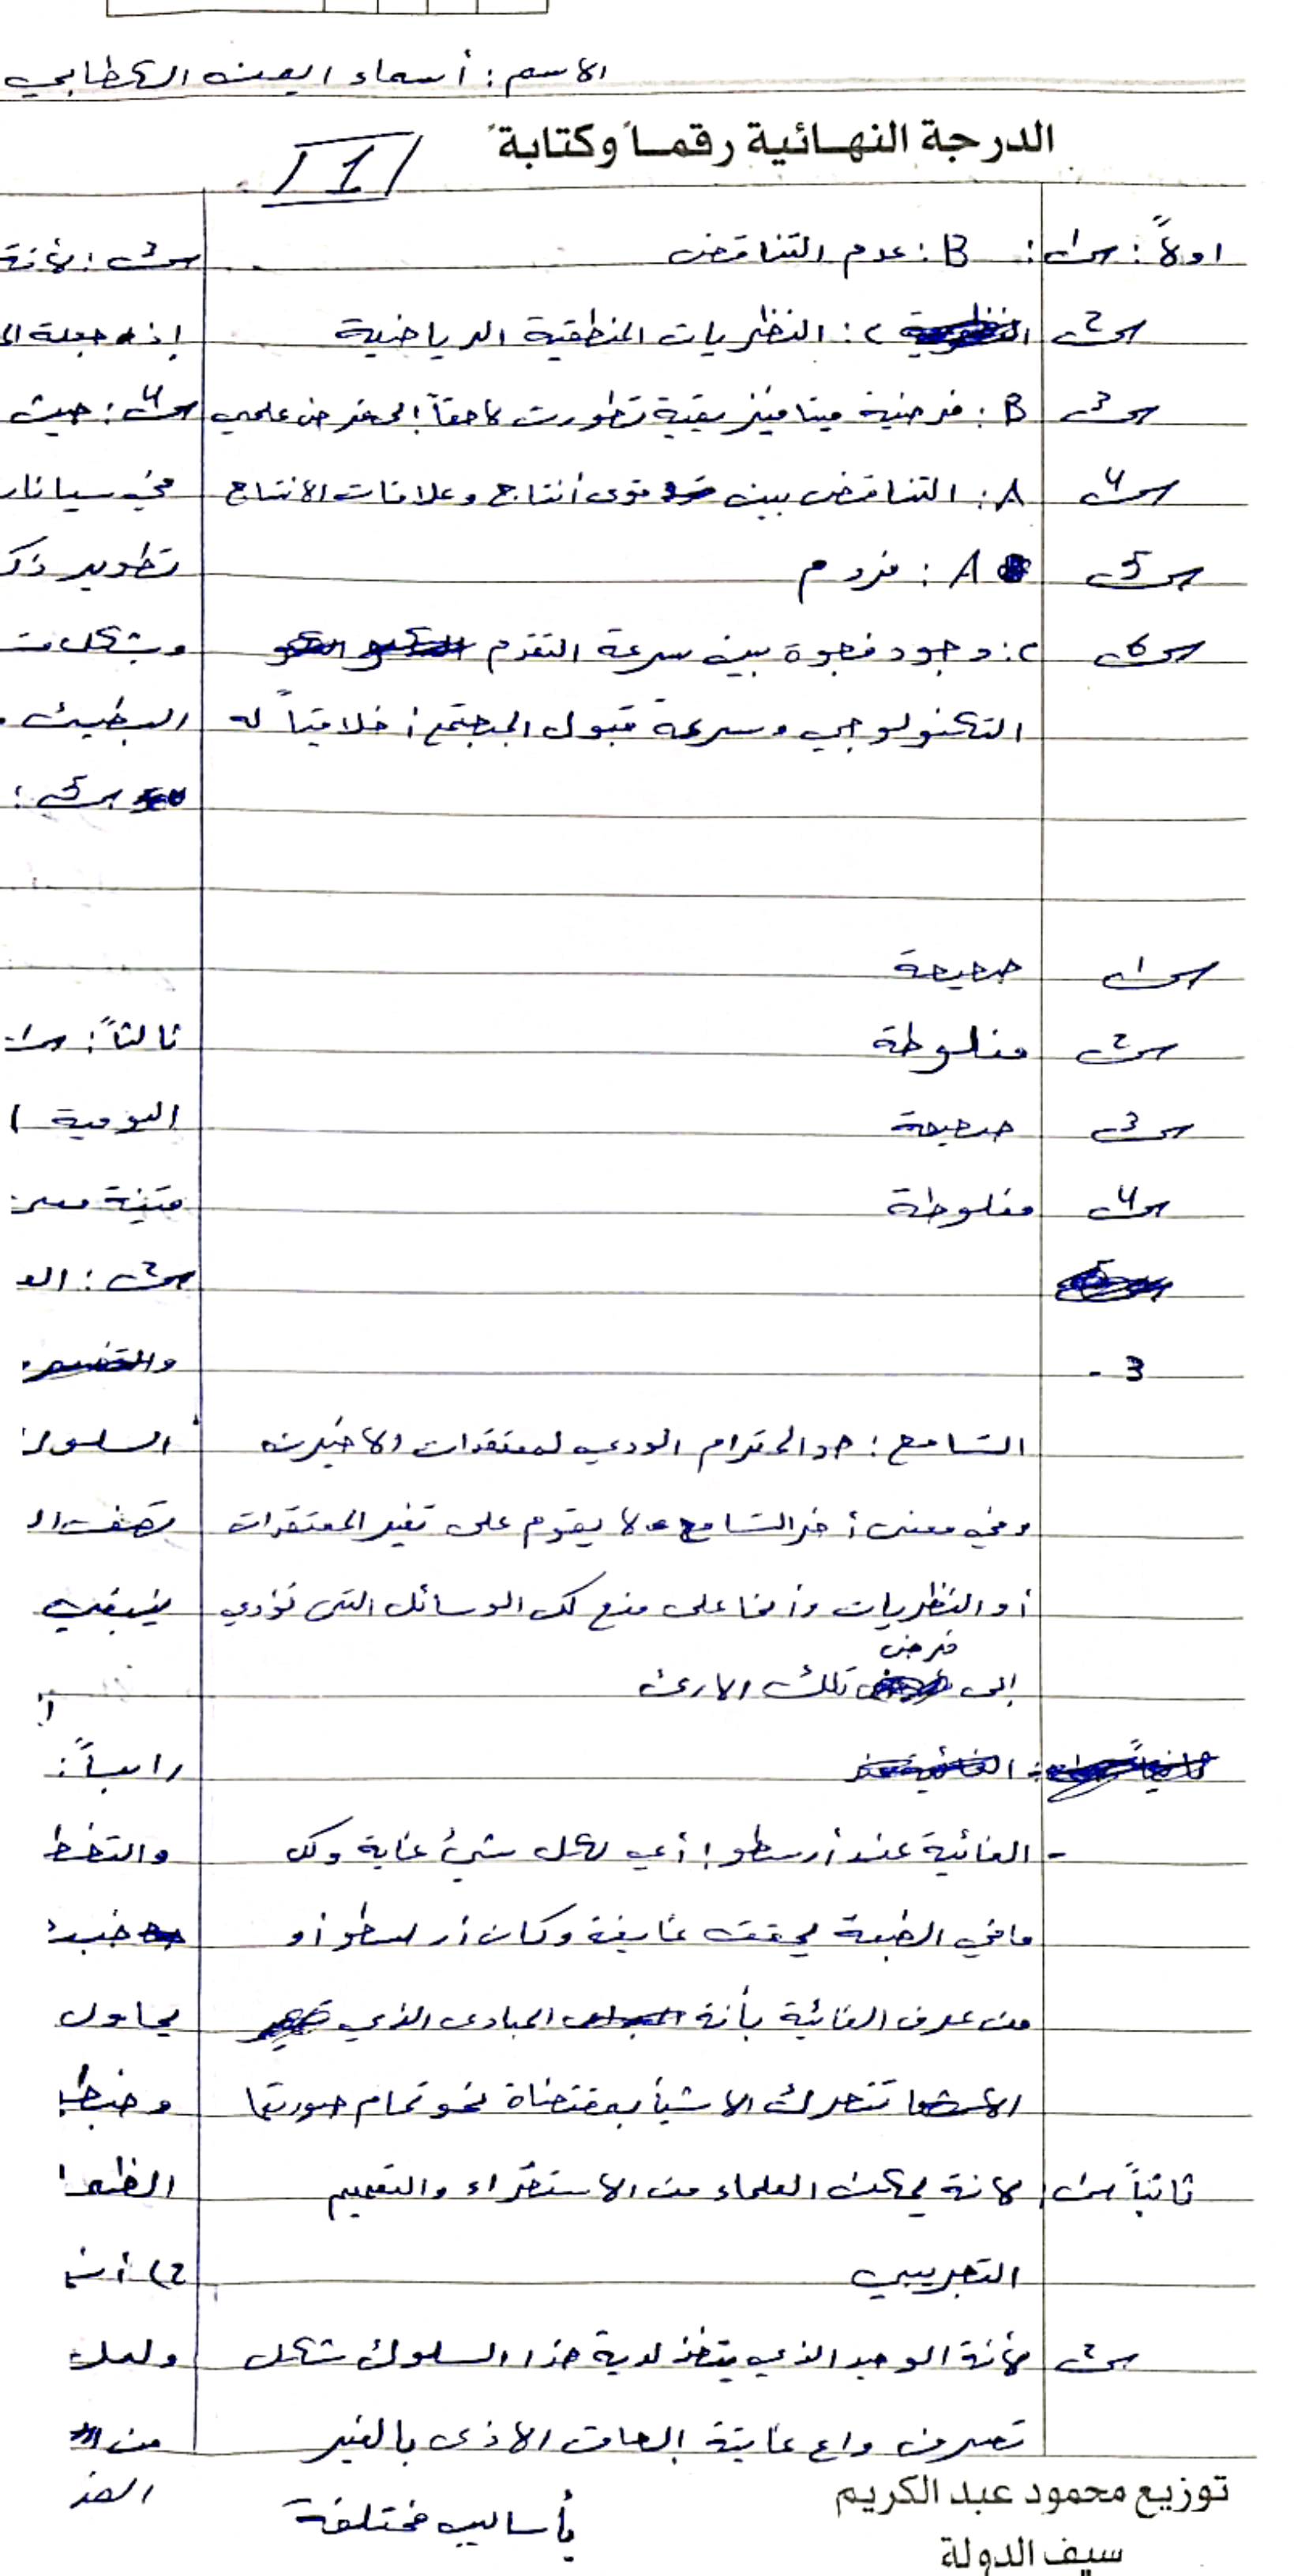 الاسم: أسماء العينه الخطابي
الدرجة النهائية رقماً وكتابة
اولاً: س1: B: عدم التناقض
س2 c: النظريات المنطقية الرياضية
س3 B: فرضية ميتافيزيقية تطورت لاحقاً الى فرض علمي
س4 A: التناقض بين قوى أنتاج وعلاقات الانتاج
س5 A: فردم
س6 c: وجود فجوة بين سرعة التقدم
التكنولوجي وسرعة قبول المجتمع أخلاقياً له
س1 صحيحة
س2 مغلوطة
س3 صحيحة
س4 مغلوطة
3 -
التسامح: هو الحترام الودي لمعتقدات الاخرين
وفي معنى أخر التسامح لا يقوم على تغير المعتقدات
أو النظريات وأنما على منع كل الوسائل التي تؤدي
إلى فرض تلك الارئ
- الغائية عند أرسطو: أي لكل شيئ غاية وكل
مافي الطبعة يحقق غايفة وكان أرسطو أو
من عرف الغائية بأنة المبادى الذي
تتحرك الاشيأ بمقتضاة نحو تمام صورتها
ثانياً س1: لانة يمكن العلماء من الاستقراء والتعميم
التجريبي
س2 لأنة الوحيد الذي يتخذ لدية هذا السلوك شكل
تصرف واع غايتة إلحاق الاذى بالغير
بأساليب مختلفة
س3: لأنة
إذا جعلة
س4: حيث
تطوير
س5:
ثالثاً: س1:
اليومية
متينة
س2:
ينبغي
رابعاً:
والتخط
يحاول
وضبط
2) أن
ولعل
من
توزيع محمود عبد الكريم
سيف الدولة